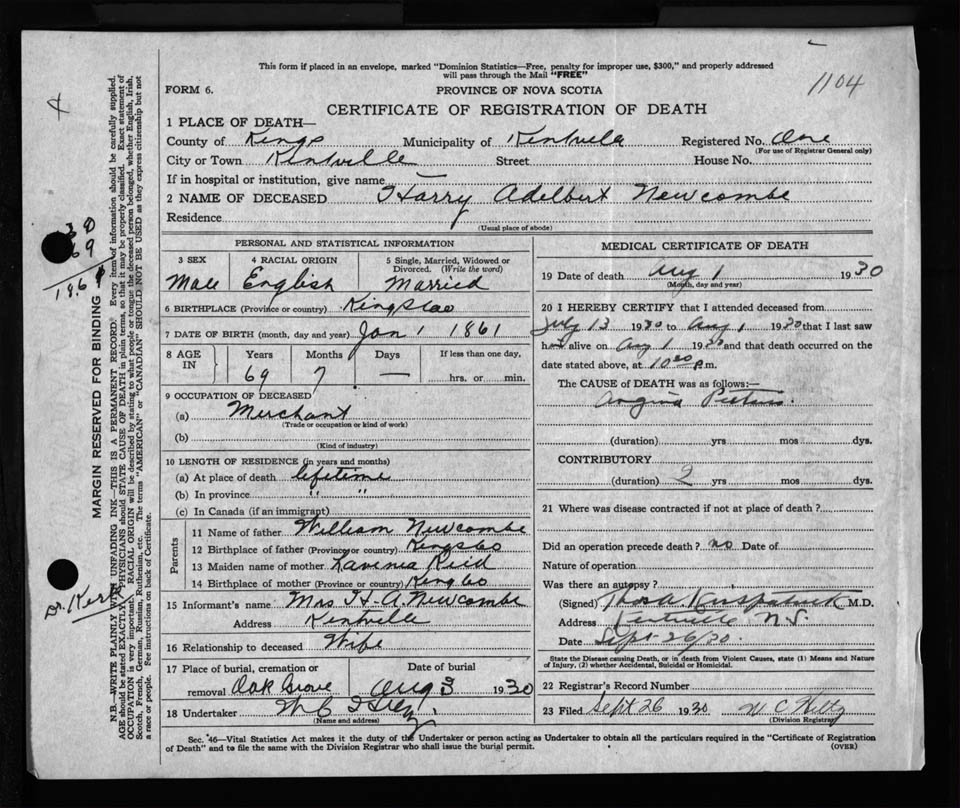 This form if placed in an envelope, marked "Dominion Statistics—Free, penalty for improper use, $300," and properly addressed
will pass through the Mail "FREE"
1104
FORM 6.
PROVINCE OF NOVA SCOTIA
CERTIFICATE OF REGISTRATION OF DEATH
1 PLACE OF DEATH—
County of Kings Municipality of Kentville Registered No. One
(For use of Registrar General only)
City or Town Kentville Street House No.
If in hospital or institution, give name —
2 NAME OF DECEASED Harry Adelbert Newcombe
Residence
(Usual place of abode)
PERSONAL AND STATISTICAL INFORMATION
3 SEX 4 RACIAL ORIGIN 5 Single, Married, Widowed or
Divorced. (Write the word)
Male English Married
6 BIRTHPLACE (Province or country)
7 DATE OF BIRTH (month, day and year) Jan 1 1861
8 AGE IN Years Months Days If less than one day,
69 7 — hrs. or min.
9 OCCUPATION OF DECEASED
(a) Merchant
(Trade or occupation or kind of work)
(b)
(Kind of industry)
10 LENGTH OF RESIDENCE (in years and months)
(a) At place of death lifetime
(b) In province " "
(c) In Canada (if an immigrant)
Parents
11 Name of father William Newcombe
12 Birthplace of father (Province or country) Kings Co
13 Maiden name of mother Lavenia Reid
14 Birthplace of mother (Province or country) Kings Co
15 Informant's name Mrs H. A. Newcombe
Address Kentville
16 Relationship to deceased Wife
17 Place of burial, cremation or Date of burial
removal Oak Grove Aug 3 1930
18 Undertaker
(Name and address)
MEDICAL CERTIFICATE OF DEATH
19 Date of death Aug 1 1930
(Month, day and year)
20 I HEREBY CERTIFY that I attended deceased from
July 13 1930 to Aug 1 1930 that I last saw
h alive on Aug 1 1930 and that death occurred on the
date stated above, at 10 p.m.
The CAUSE OF DEATH was as follows:—
Angina Pectoris.
(duration) yrs mos dys.
CONTRIBUTORY
(duration) 2 yrs mos dys.
21 Where was disease contracted if not at place of death?
Did an operation precede death? no Date of
Nature of operation
Was there an autopsy?
(Signed) M.D.
Address Kentville N.S.
Date Sept 26/30.
State the Disease causing Death, or in death from Violent Causes, state (1) Means and Nature
of Injury, (2) whether Accidental, Suicidal or Homicidal.
22 Registrar's Record Number
23 Filed Sept 26 1930 W C
(Division Registrar)
Sec. 46—Vital Statistics Act makes it the duty of the Undertaker or person acting as Undertaker to obtain all the particulars required in the "Certificate of Registration
of Death" and to file the same with the Division Registrar who shall issue the burial permit. (OVER)
MARGIN RESERVED FOR BINDING
N.B.—WRITE PLAINLY WITH UNFADING INK—THIS IS A PERMANENT RECORD. Every item of information should be carefully supplied.
AGE should be stated EXACTLY. PHYSICIANS should STATE CAUSE OF DEATH in plain terms, so that it may be properly classified. Exact statement of
OCCUPATION is very important. RACIAL ORIGIN will be described by stating to what people or tongue the deceased person belonged, whether English, Irish,
Scotch, French, German, Russian, Ruthenian, etc. The terms "AMERICAN" or "CANADIAN" SHOULD NOT BE USED as they express citizenship but not
a race or people. Fee instructions on back of Certificate.
30
69
1861